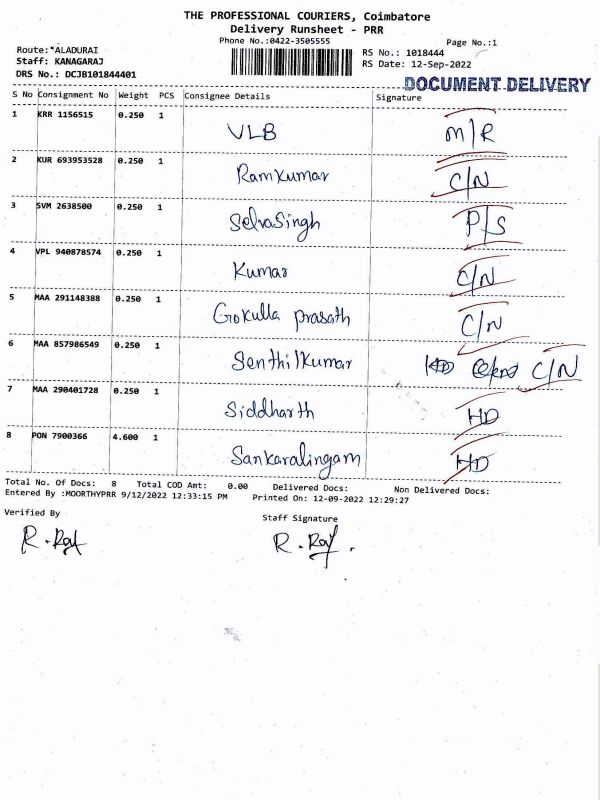 THE PROFESSIONAL COURIERS, Coimbatore
Delivery Runsheet - PRR
Phone No.:0422-3505555 Page No.:1
Route:"ALADURAI RS No.: 1018444
Staff: KANAGARAJ RS Date: 12-Sep-2022
DRS No.: DCJB101844401
DOCUMENT DELIVERY
S No Consignment No Weight PCS Consignee Details Signature
1 KRR 1156515 0.250 1 VLB M/R
2 KUR 693953528 0.250 1 Ramkumar C/N
3 SVM 2638500 0.250 1 SelvaSingh P/S
4 VPL 940878574 0.250 1 Kumar C/N
5 MAA 291148388 0.250 1 Gokulla prasath C/N
6 MAA 857986549 0.250 1 Senthilkumar C/N
7 MAA 290401728 0.250 1 Siddharth HD
8 PON 7900366 4.600 1 Sankaralingam HD
Total No. Of Docs: 8 Total COD Amt: 0.00 Delivered Docs: Non Delivered Docs:
Entered By :MOORTHYPRR 9/12/2022 12:33:15 PM Printed On: 12-09-2022 12:29:27
Verified By Staff Signature
R. Raj R. Raj.